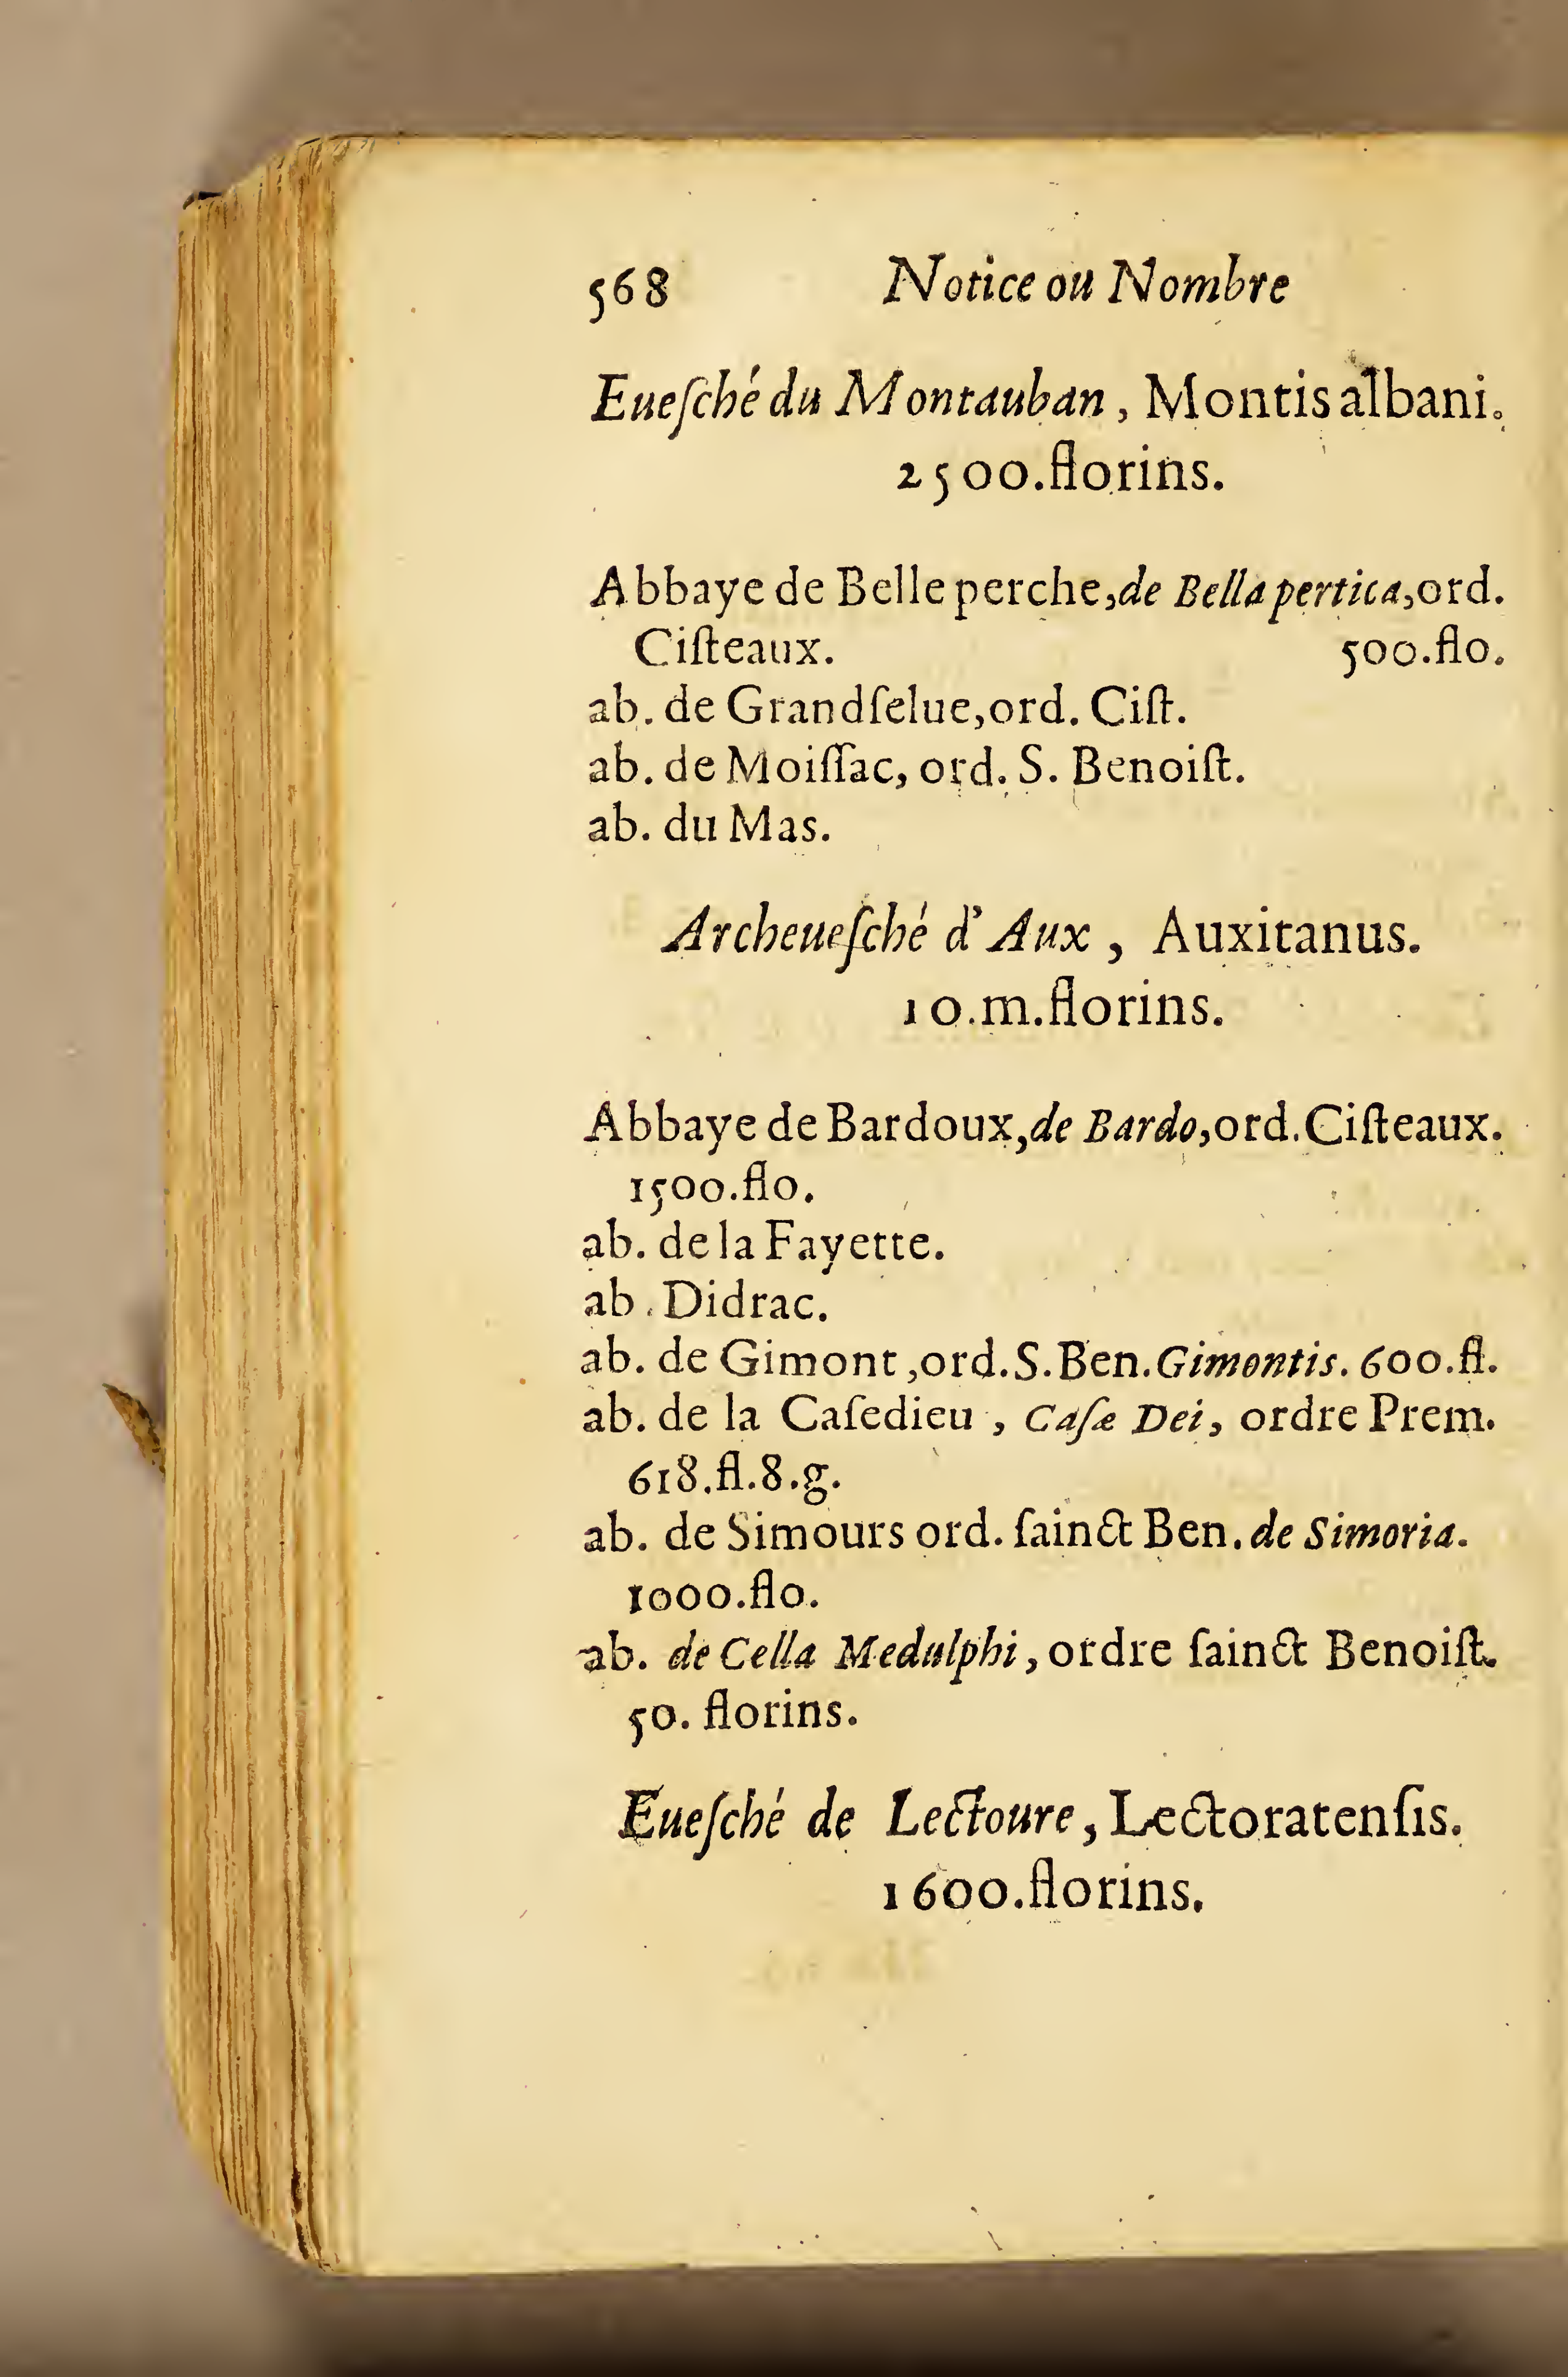 568 Notice ou Nombre
Eueſché du Montauban, Montis albani.
2500.florins.
Abbaye de Belle perche, de Bella pertica, ord.
Ciſteaux. 500.flo.
ab. de Grandſelue, ord. Ciſt.
ab. de Moiſſac, ord. S. Benoiſt.
ab. du Mas.
Archeueſché d'Aux, Auxitanus.
10.m.florins.
Abbaye de Bardoux, de Bardo, ord. Ciſteaux.
1500.flo.
ab. de la Fayette.
ab. Didrac.
ab. de Gimont, ord. S. Ben. Gimontis. 600.fl.
ab. de la Caſedieu, Caſæ Dei, ordre Prem.
618.fl.8.g.
ab. de Simours ord. ſainct Ben. de Simoria.
1000.flo.
ab. de Cella Medulphi, ordre ſainct Benoiſt.
50. florins.
Eueſché de Lectoure, Lectoratenſis.
1600.florins.